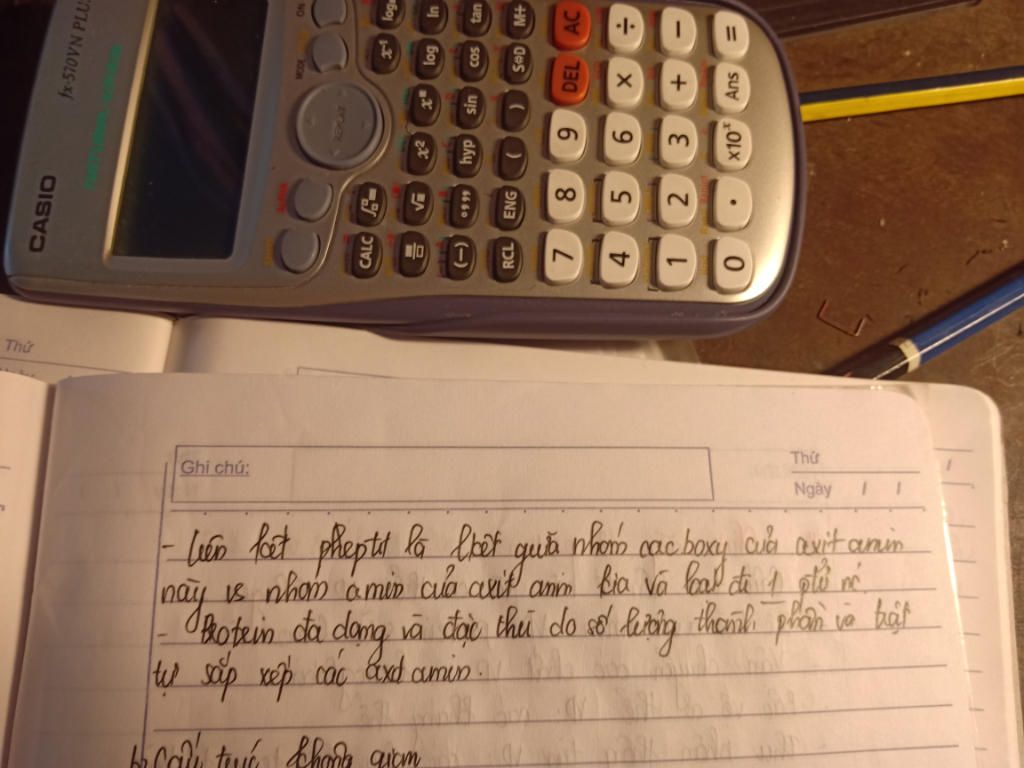 CASIO
fx-570VN PLUS
ON
MODE
REPLAY
x⁻¹
log
ln
cos
tan
S⇔D
M+
x²
hyp
sin
(
)
CALC
(−)
RCL
ENG
AC
÷
−
=
DEL
×
+
Ans
9
6
3
×10ˣ
8
5
2
.
7
4
1
0
Thứ
Ghi chú:
Thứ
Ngày / /
- Liên kết pheptit là lkết giữa nhóm cacboxy của axit amin
này vs nhóm amin của axit amin kia và loại đi 1 ptử nc
- Protein đa dạng và đặc thù do số lượng thành phần và trật
tự sắp xếp các axd amin.
b, Cấu trúc không gian